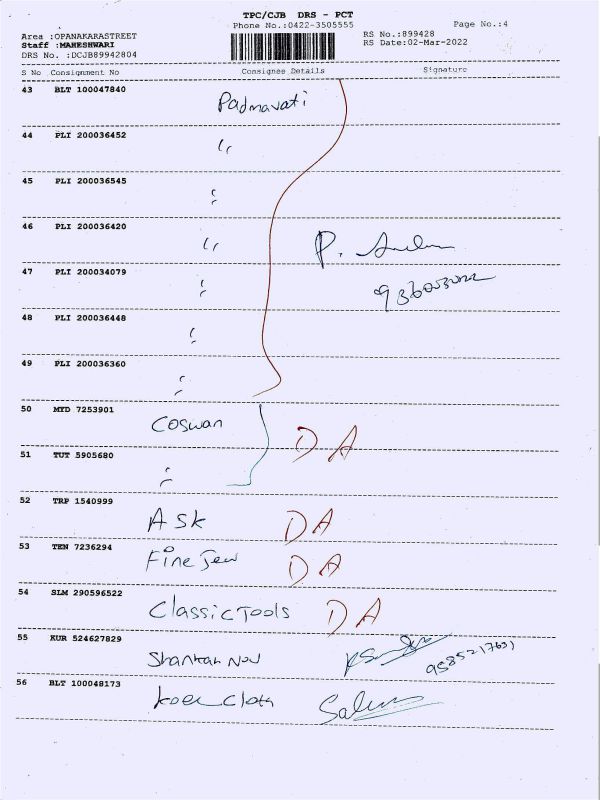 TPC/CJB DRS - PCT
Phone No.:0422-3505555
Page No.:4
Area :OPANAKARASTREET
Staff :MAHESHWARI
DRS No. :DCJB89942804
RS No.:899428
RS Date:02-Mar-2022
S No Consignment No Consignee Details Signature
43 BLT 100047840 Padmavati
44 PLI 200036452 "
45 PLI 200036545 "
46 PLI 200036420 "
P.
47 PLI 200034079 "
48 PLI 200036448 "
49 PLI 200036360 "
50 MTD 7253901 Coswan
DA
51 TUT 5905680 "
52 TRP 1540999 Ask DA
53 TEN 7236294 Fine Jew DA
54 SLM 290596522 Classic Tools DA
55 KUR 524627829
56 BLT 100048173 Cloth